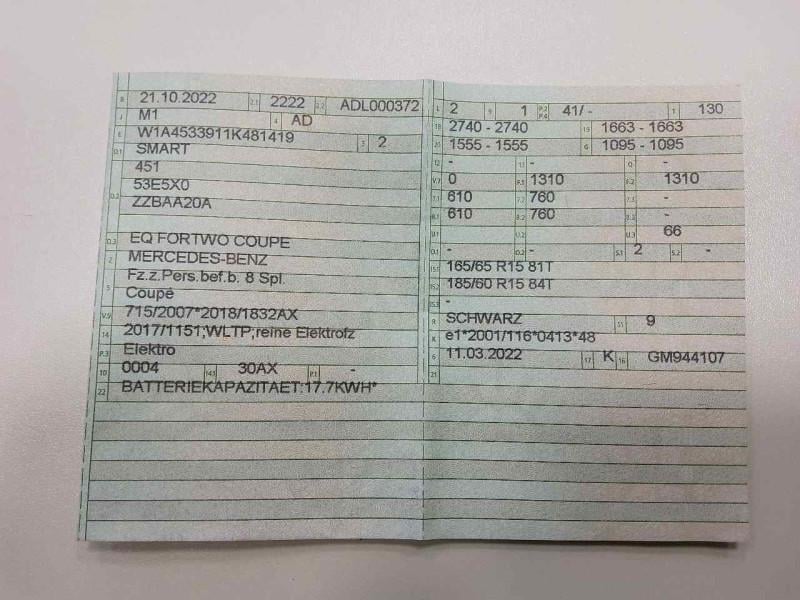 B 21.10.2022 2.1 2222 2.2 ADL000372
J M1 4 AD
E W1A4533911K481419 3 2
D.1 SMART
451
D.2 53E5X0
ZZBAA20A
D.3 EQ FORTWO COUPE
2 MERCEDES-BENZ
5 Fz.z.Pers.bef.b. 8 Spl.
Coupé
V.9 715/2007*2018/1832AX
14 2017/1151;WLTP;reine Elektrofz
P.3 Elektro
10 0004 14.1 30AX P.1 -
22 BATTERIEKAPAZITAET:17.7KWH*
L 2 9 1 P.2 P.4 41/ - T 130
18 2740 - 2740 19 1663 - 1663
20 1555 - 1555 G 1095 - 1095
12 - 13 - Q -
V.7 0 F.1 1310 F.2 1310
7.1 610 7.2 760 7.3 -
8.1 610 8.2 760 8.3 -
U.1 U.2 U.3 66
O.1 - O.2 - S.1 2 S.2 -
15.1 165/65 R15 81T
15.2 185/60 R15 84T
15.3 -
R SCHWARZ 11 9
K e1*2001/116*0413*48
6 11.03.2022 17 K 16 GM944107
21